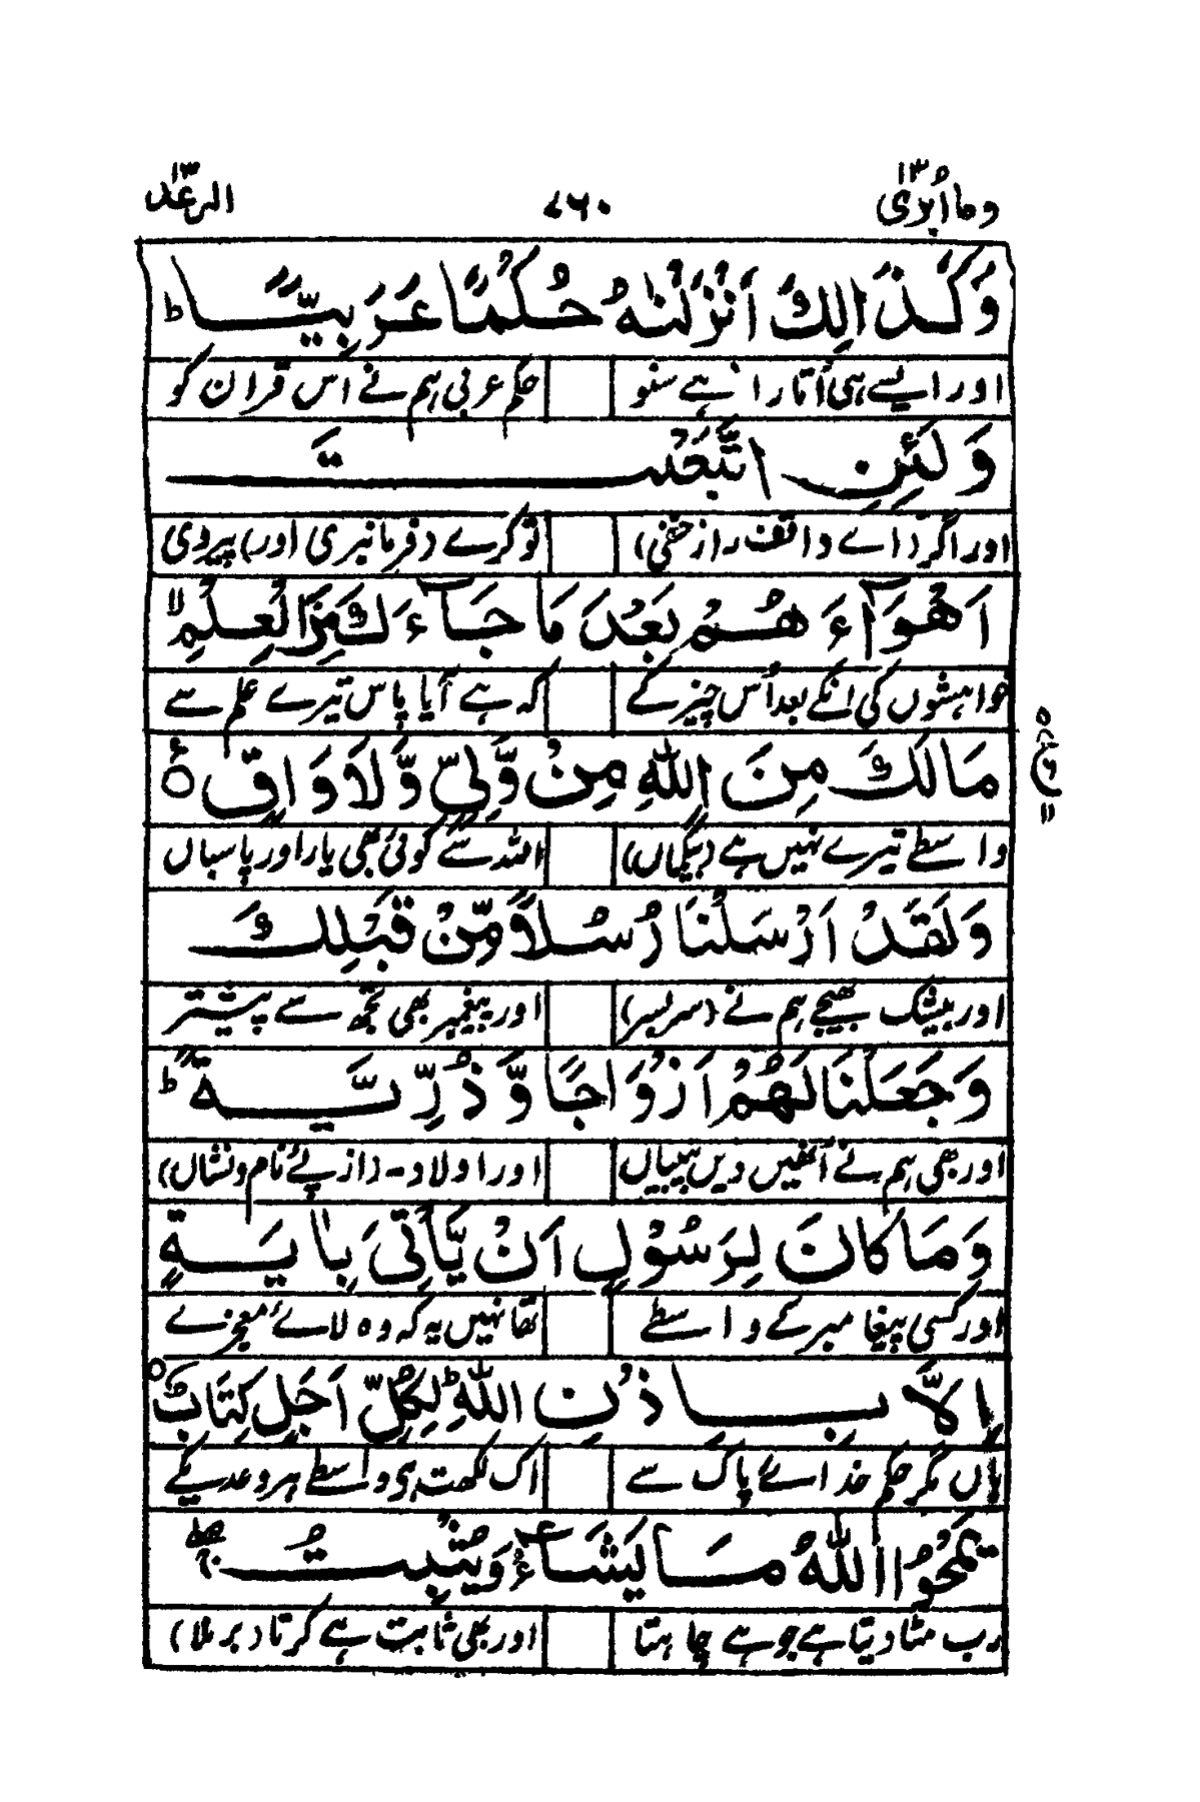 وما أبرئ ١٣ ٧٦٠ الرعد ١٣
وَكَذٰلِكَ اَنْزَلْنٰهُ حُكْمًا عَرَبِيًّا ؕ
اور ایسے ہی اُتارا ہے سنو حکم عربی ہم نے اس قرآن کو
وَلَئِنِ اتَّبَعْتَ
اور اگر (اے واقف راز خفی) تو کرے (فرمانبری اور) پیروی
اَهْوَآءَهُمْ بَعْدَ مَا جَآءَكَ مِنَ الْعِلْمِ ۙ
خواہشوں کی انکے بعد اُس چیز کے کہ ہے آیا پاس تیرے علم سے
مَا لَكَ مِنَ اللّٰهِ مِنْ وَّلِيٍّ وَّلَا وَاقٍ ۠
واسطے تیرے نہیں ہے (بیگماں) اللہ سے کوئی بھی یار اور پاسباں
وَلَقَدْ اَرْسَلْنَا رُسُلًا مِّنْ قَبْلِكَ
اور بیشک بھیجے ہم نے (سربسر) اور پیغمبر بھی تجھ سے پیشتر
وَجَعَلْنَا لَهُمْ اَزْوَاجًا وَّذُرِّيَّةً ؕ
اور بھی ہم نے اُنھیں دیں بیبیاں اور اولاد۔ (از پئے نام و نشاں)
وَمَا كَانَ لِرَسُوْلٍ اَنْ يَّاْتِيَ بِاٰيَةٍ
اور کسی پیغامبر کے واسطے تھا نہیں یہ کہ وہ لائے معجزے
اِلَّا بِاِذْنِ اللّٰهِ ؕ لِكُلِّ اَجَلٍ كِتَابٌ ۝
ہاں مگر حکم خدائے پاک سے اک لکھت ہی واسطے ہر وعدیکے
يَمْحُوا اللّٰهُ مَا يَشَآءُ وَيُثْبِتُ ۖ
رب مٹا دیتا ہے جو ہے چاہتا اور بھی ثابت ہے کرتا (برملا)